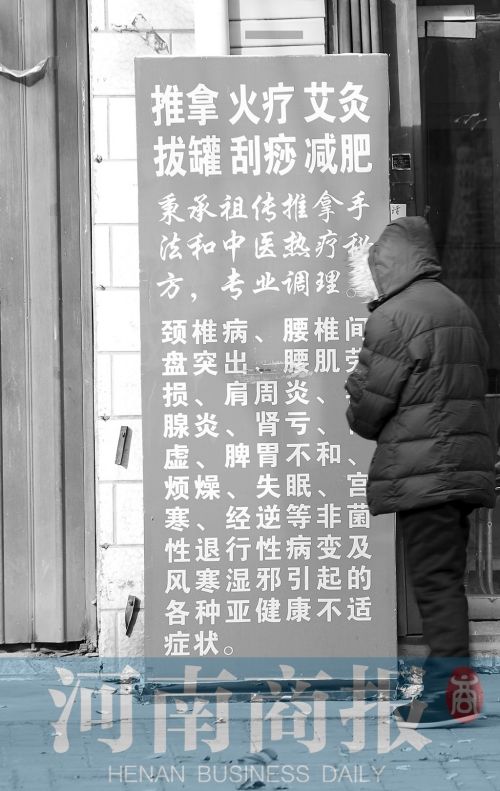 推拿 火疗 艾灸
拔罐 刮痧 减肥
秉承祖传推拿手
法和中医热疗秘
方，专业调理。
颈椎病、腰椎间
盘突出、腰肌劳
损、肩周炎、
腺炎、肾亏、
虚、脾胃不和、
烦燥、失眠、宫
寒、经逆等非菌
性退行性病变及
风寒湿邪引起的
各种亚健康不适
症状。
河南商报
商
HENAN BUSINESS DAILY